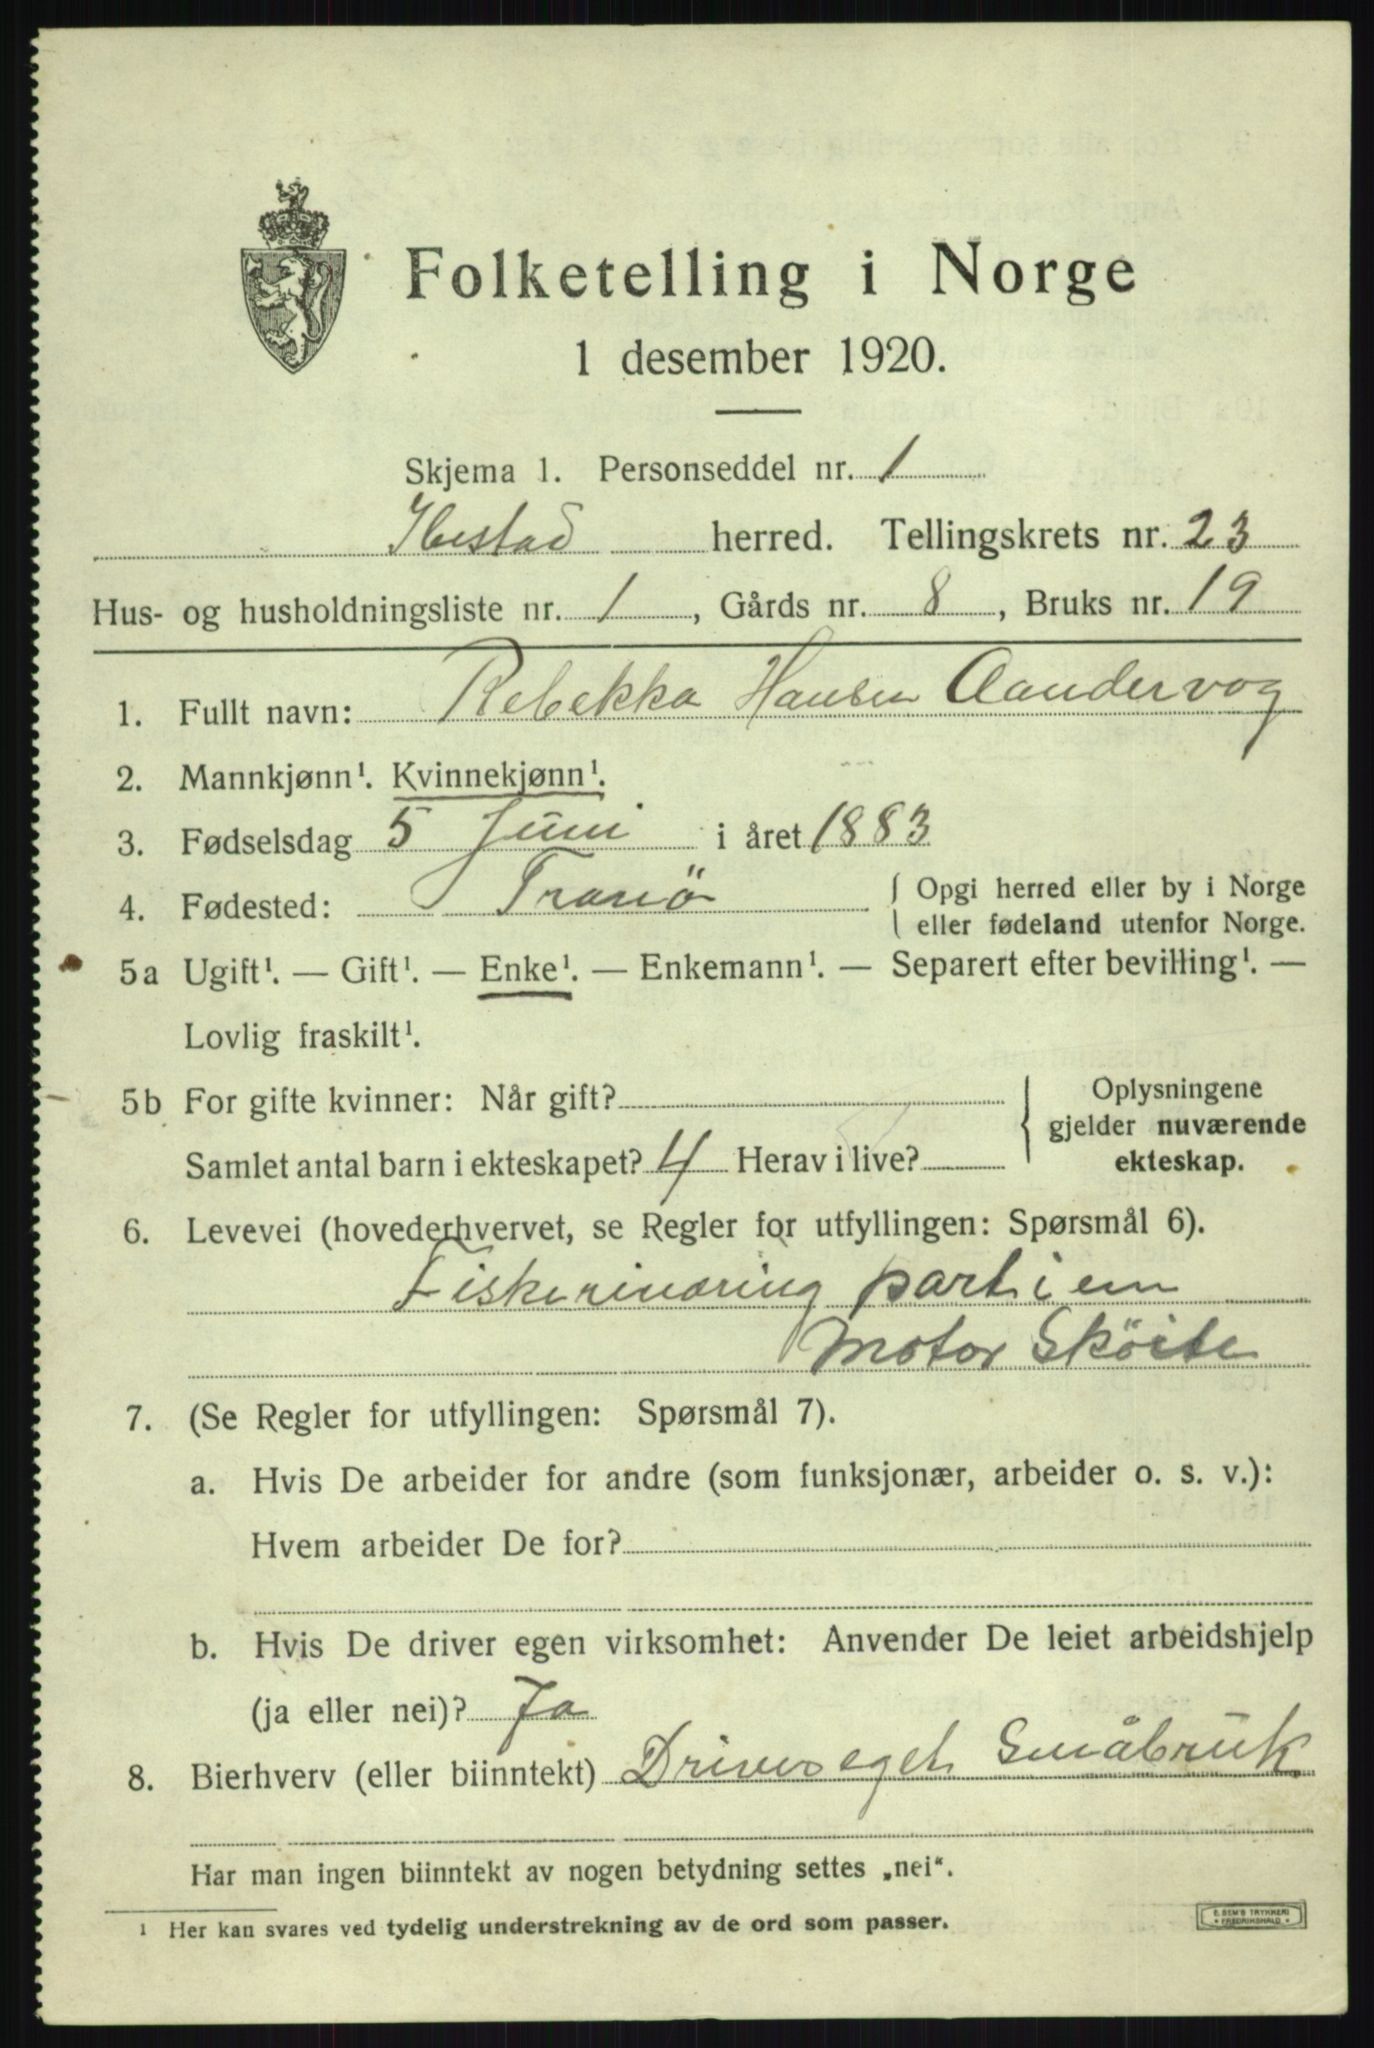 Folketelling i Norge
1 desember 1920.
Skjema 1. Personseddel nr. 1
Ibestad herred. Tellingskrets nr. 23
Hus- og husholdningsliste nr. 1, Gårds nr. 8, Bruks nr. 19
1. Fullt navn: Rebekka Hansen Aandervag
2. Mannkjønn¹. Kvinnekjønn¹.
3. Fødselsdag 5 Juni i året 1883
4. Fødested: Tranö { Opgi herred eller by i Norge
eller fødeland utenfor Norge.
5a Ugift¹. — Gift¹. — Enke¹. — Enkemann¹. — Separert efter bevilling¹. —
Lovlig fraskilt¹.
5b For gifte kvinner: Når gift? } Oplysningene
gjelder nuværende
Samlet antal barn i ekteskapet? 4 Herav i live? ekteskap.
6. Levevei (hovederhvervet, se Regler for utfyllingen: Spørsmål 6).
Fiskerinæring part i en
Motor Sköite
7. (Se Regler for utfyllingen: Spørsmål 7).
a. Hvis De arbeider for andre (som funksjonær, arbeider o. s. v.):
Hvem arbeider De for?
b. Hvis De driver egen virksomhet: Anvender De leiet arbeidshjelp
(ja eller nei)? Ja
8. Bierhverv (eller biinntekt) Driver eget Småbruk
Har man ingen biinntekt av nogen betydning settes „nei“.
¹ Her kan svares ved tydelig understrekning av de ord som passer.
E. SEM'S TRYKKERI
FREDRIKSHALD